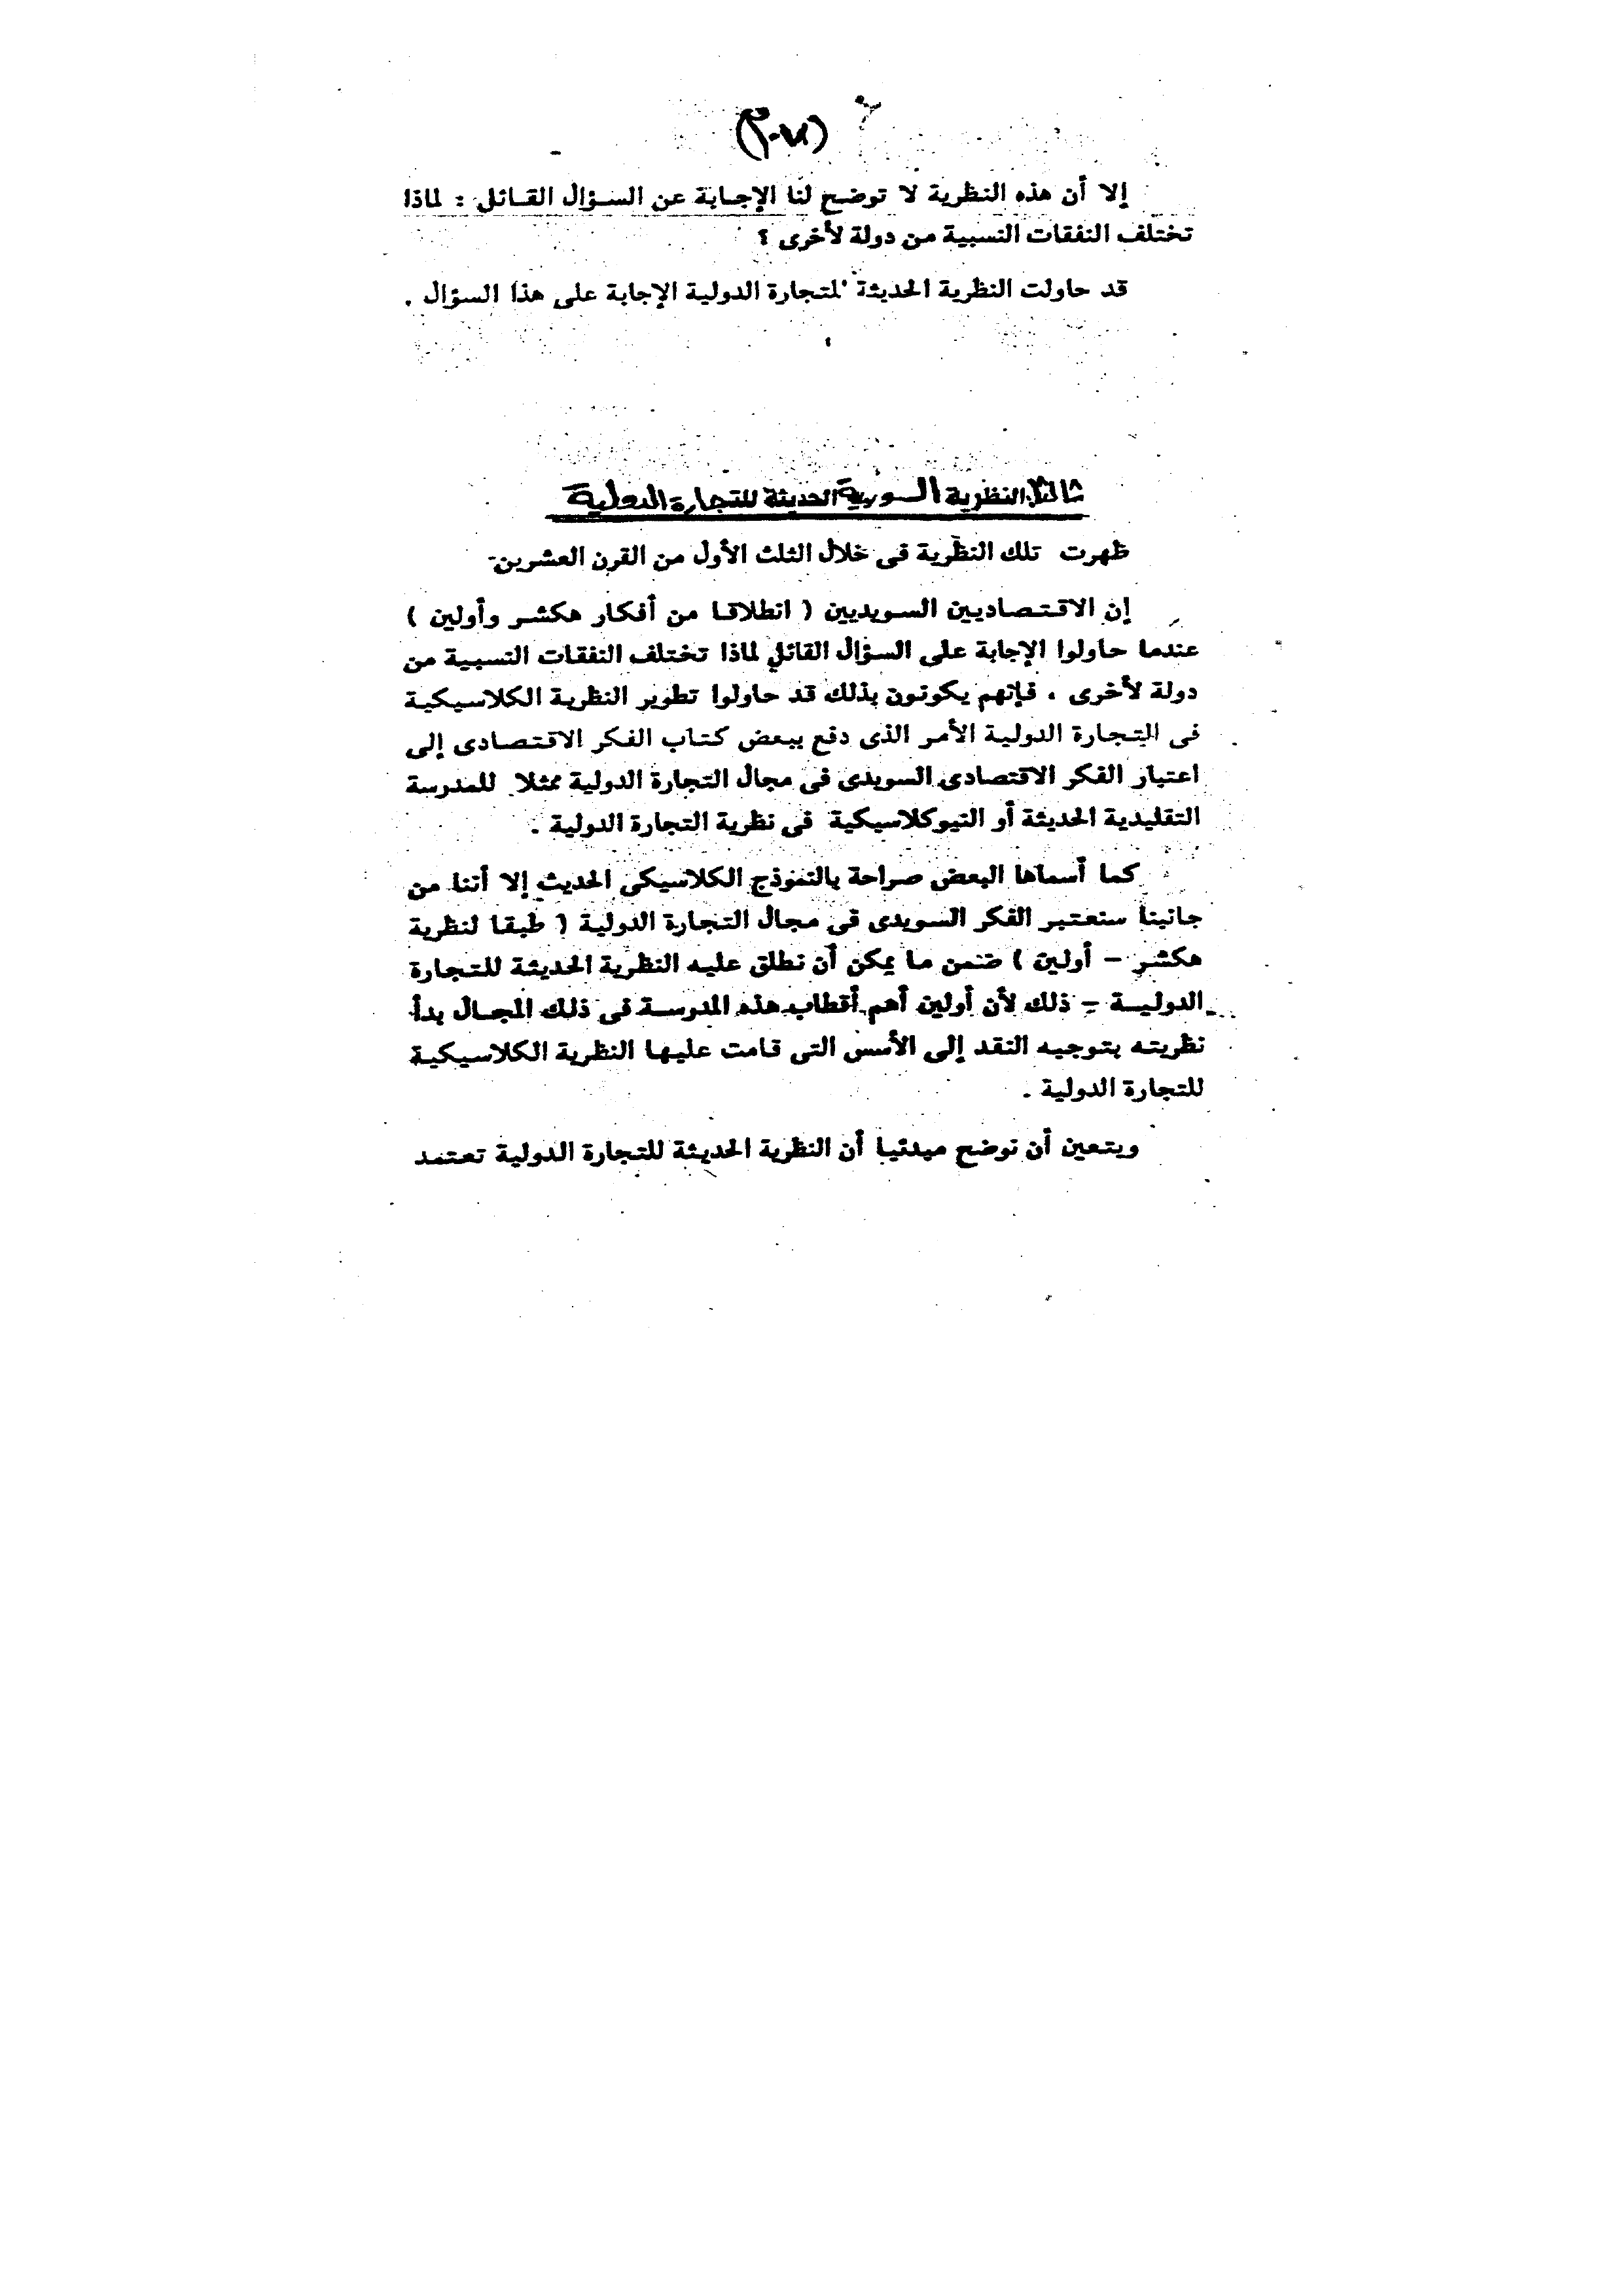 إلا أن هذه النظرية لا توضح لنا الإجابة عن السؤال القائل : لماذا
تختلف النفقات النسبية من دولة لأخرى ؟
قد حاولت النظرية الحديثة للتجارة الدولية الإجابة على هذا السؤال .
ثالثا: النظرية السويدية الحديثة للتجارة الدولية
ظهرت تلك النظرية فى خلال الثلث الأول من القرن العشرين
إن الاقتصاديين السويديين ( انطلاقا من أفكار هكشر وأولين )
عندما حاولوا الإجابة على السؤال القائل لماذا تختلف النفقات النسبية من
دولة لأخرى ، فإنهم يكونون بذلك قد حاولوا تطوير النظرية الكلاسيكية
فى التجارة الدولية الأمر الذى دفع ببعض كتاب الفكر الاقتصادى إلى
اعتبار الفكر الاقتصادى السويدى فى مجال التجارة الدولية ممثلا للمدرسة
التقليدية الحديثة أو النيوكلاسيكية فى نظرية التجارة الدولية .
كما أسماها البعض صراحة بالنموذج الكلاسيكى الحديث إلا أننا من
جانبنا سنعتبر الفكر السويدى فى مجال التجارة الدولية ( طبقا لنظرية
هكشر - أولين ) ضمن ما يمكن أن نطلق عليه النظرية الحديثة للتجارة
الدولية - ذلك لأن أولين أهم أقطاب هذه المدرسة فى ذلك المجال بدأ
نظريته بتوجيه النقد إلى الأسس التى قامت عليها النظرية الكلاسيكية
للتجارة الدولية .
ويتعين أن نوضح مبدئيا أن النظرية الحديثة للتجارة الدولية تعتمد